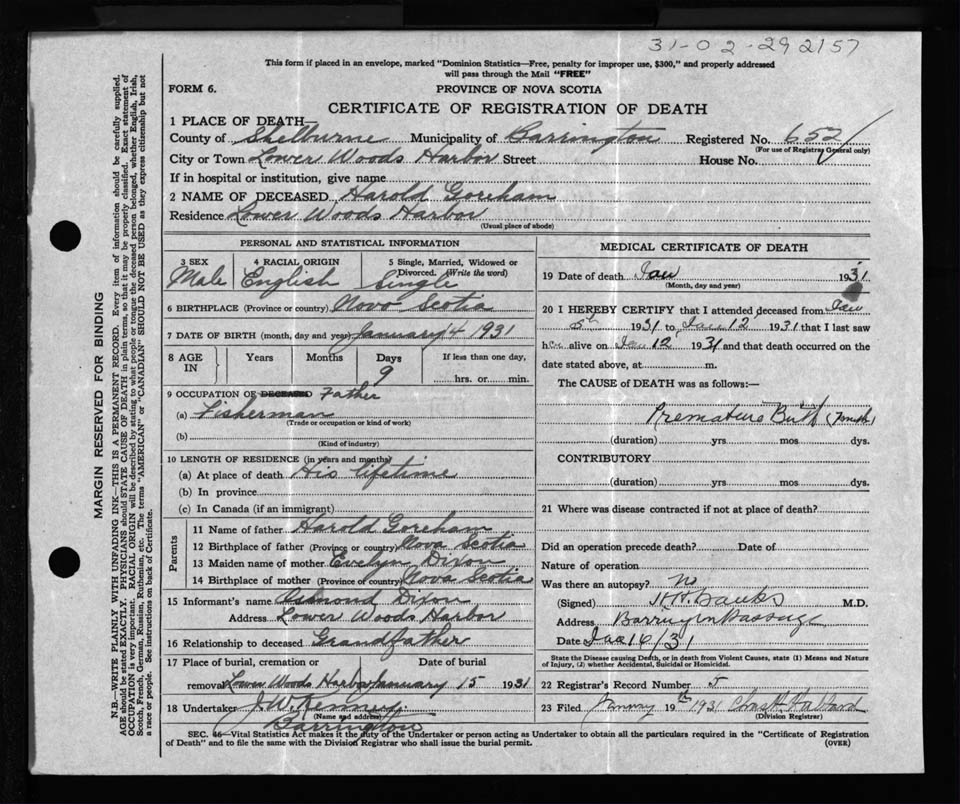 31-02-292157
This form if placed in an envelope, marked "Dominion Statistics—Free, penalty for improper use, $300," and properly addressed
will pass through the Mail "FREE"
FORM 6.
PROVINCE OF NOVA SCOTIA
CERTIFICATE OF REGISTRATION OF DEATH
1 PLACE OF DEATH—
County of Shelburne Municipality of Barrington Registered No. 652
(For use of Registrar General only)
City or Town Lower Woods Harbor Street House No.
If in hospital or institution, give name
2 NAME OF DECEASED Harold Goreham
Residence Lower Woods Harbor
(Usual place of abode)
PERSONAL AND STATISTICAL INFORMATION
3 SEX 4 RACIAL ORIGIN 5 Single, Married, Widowed or
Divorced. (Write the word)
Male English Single
6 BIRTHPLACE (Province or country) Nova Scotia
7 DATE OF BIRTH (month, day and year) January 4 1931
8 AGE IN Years Months Days If less than one day,
9 hrs. or min.
9 OCCUPATION OF DECEASED Father
(a) Fisherman
(Trade or occupation or kind of work)
(b)
(Kind of industry)
10 LENGTH OF RESIDENCE (in years and months)
(a) At place of death His lifetime
(b) In province
(c) In Canada (if an immigrant)
Parents
11 Name of father Harold Goreham
12 Birthplace of father (Province or country) Nova Scotia
13 Maiden name of mother Evelyn Dixon
14 Birthplace of mother (Province or country) Nova Scotia
15 Informant's name Osmond Dixon
Address Lower Woods Harbor
16 Relationship to deceased Grandfather
17 Place of burial, cremation or Date of burial
removal Lower Woods Harbor January 15 1931
18 Undertaker J.W. Kenney
(Name and address)
Barrington
MEDICAL CERTIFICATE OF DEATH
19 Date of death Jan 1931
(Month, day and year)
20 I HEREBY CERTIFY that I attended deceased from Jan
5th 1931 to Jan 12 1931 that I last saw
h alive on Jan 12 1931 and that death occurred on the
date stated above, at m.
The CAUSE of DEATH was as follows:
Premature Birth
(duration) yrs mos dys.
CONTRIBUTORY
(duration) yrs mos dys.
21 Where was disease contracted if not at place of death?
Did an operation precede death? Date of
Nature of operation
Was there an autopsy? No
(Signed) H. Banks M.D.
Address Barrington Passage
Date Jan 16/31
State the Disease causing Death, or in death from Violent Causes, state (1) Means and Nature
of Injury, (2) whether Accidental, Suicidal or Homicidal.
22 Registrar's Record Number 5
23 Filed January 19th 1931 Chas H. Hubbard
(Division Registrar)
SEC. 46—Vital Statistics Act makes it the duty of the Undertaker or person acting as Undertaker to obtain all the particulars required in the "Certificate of Registration
of Death" and to file the same with the Division Registrar who shall issue the burial permit. (OVER)
MARGIN RESERVED FOR BINDING
N.B.—WRITE PLAINLY WITH UNFADING INK—THIS IS A PERMANENT RECORD. Every item of information should be carefully supplied.
AGE should be stated EXACTLY. PHYSICIANS should STATE CAUSE OF DEATH in plain terms, so that it may be properly classified. Exact statement of
OCCUPATION is very important. RACIAL ORIGIN will be described by stating to what people or tongue the deceased person belonged, whether English, Irish,
Scotch, French, German, Russian, Ruthenian, etc. The terms "AMERICAN" or "CANADIAN" SHOULD NOT BE USED as they express citizenship but not
a race or people. See instructions on back of Certificate.